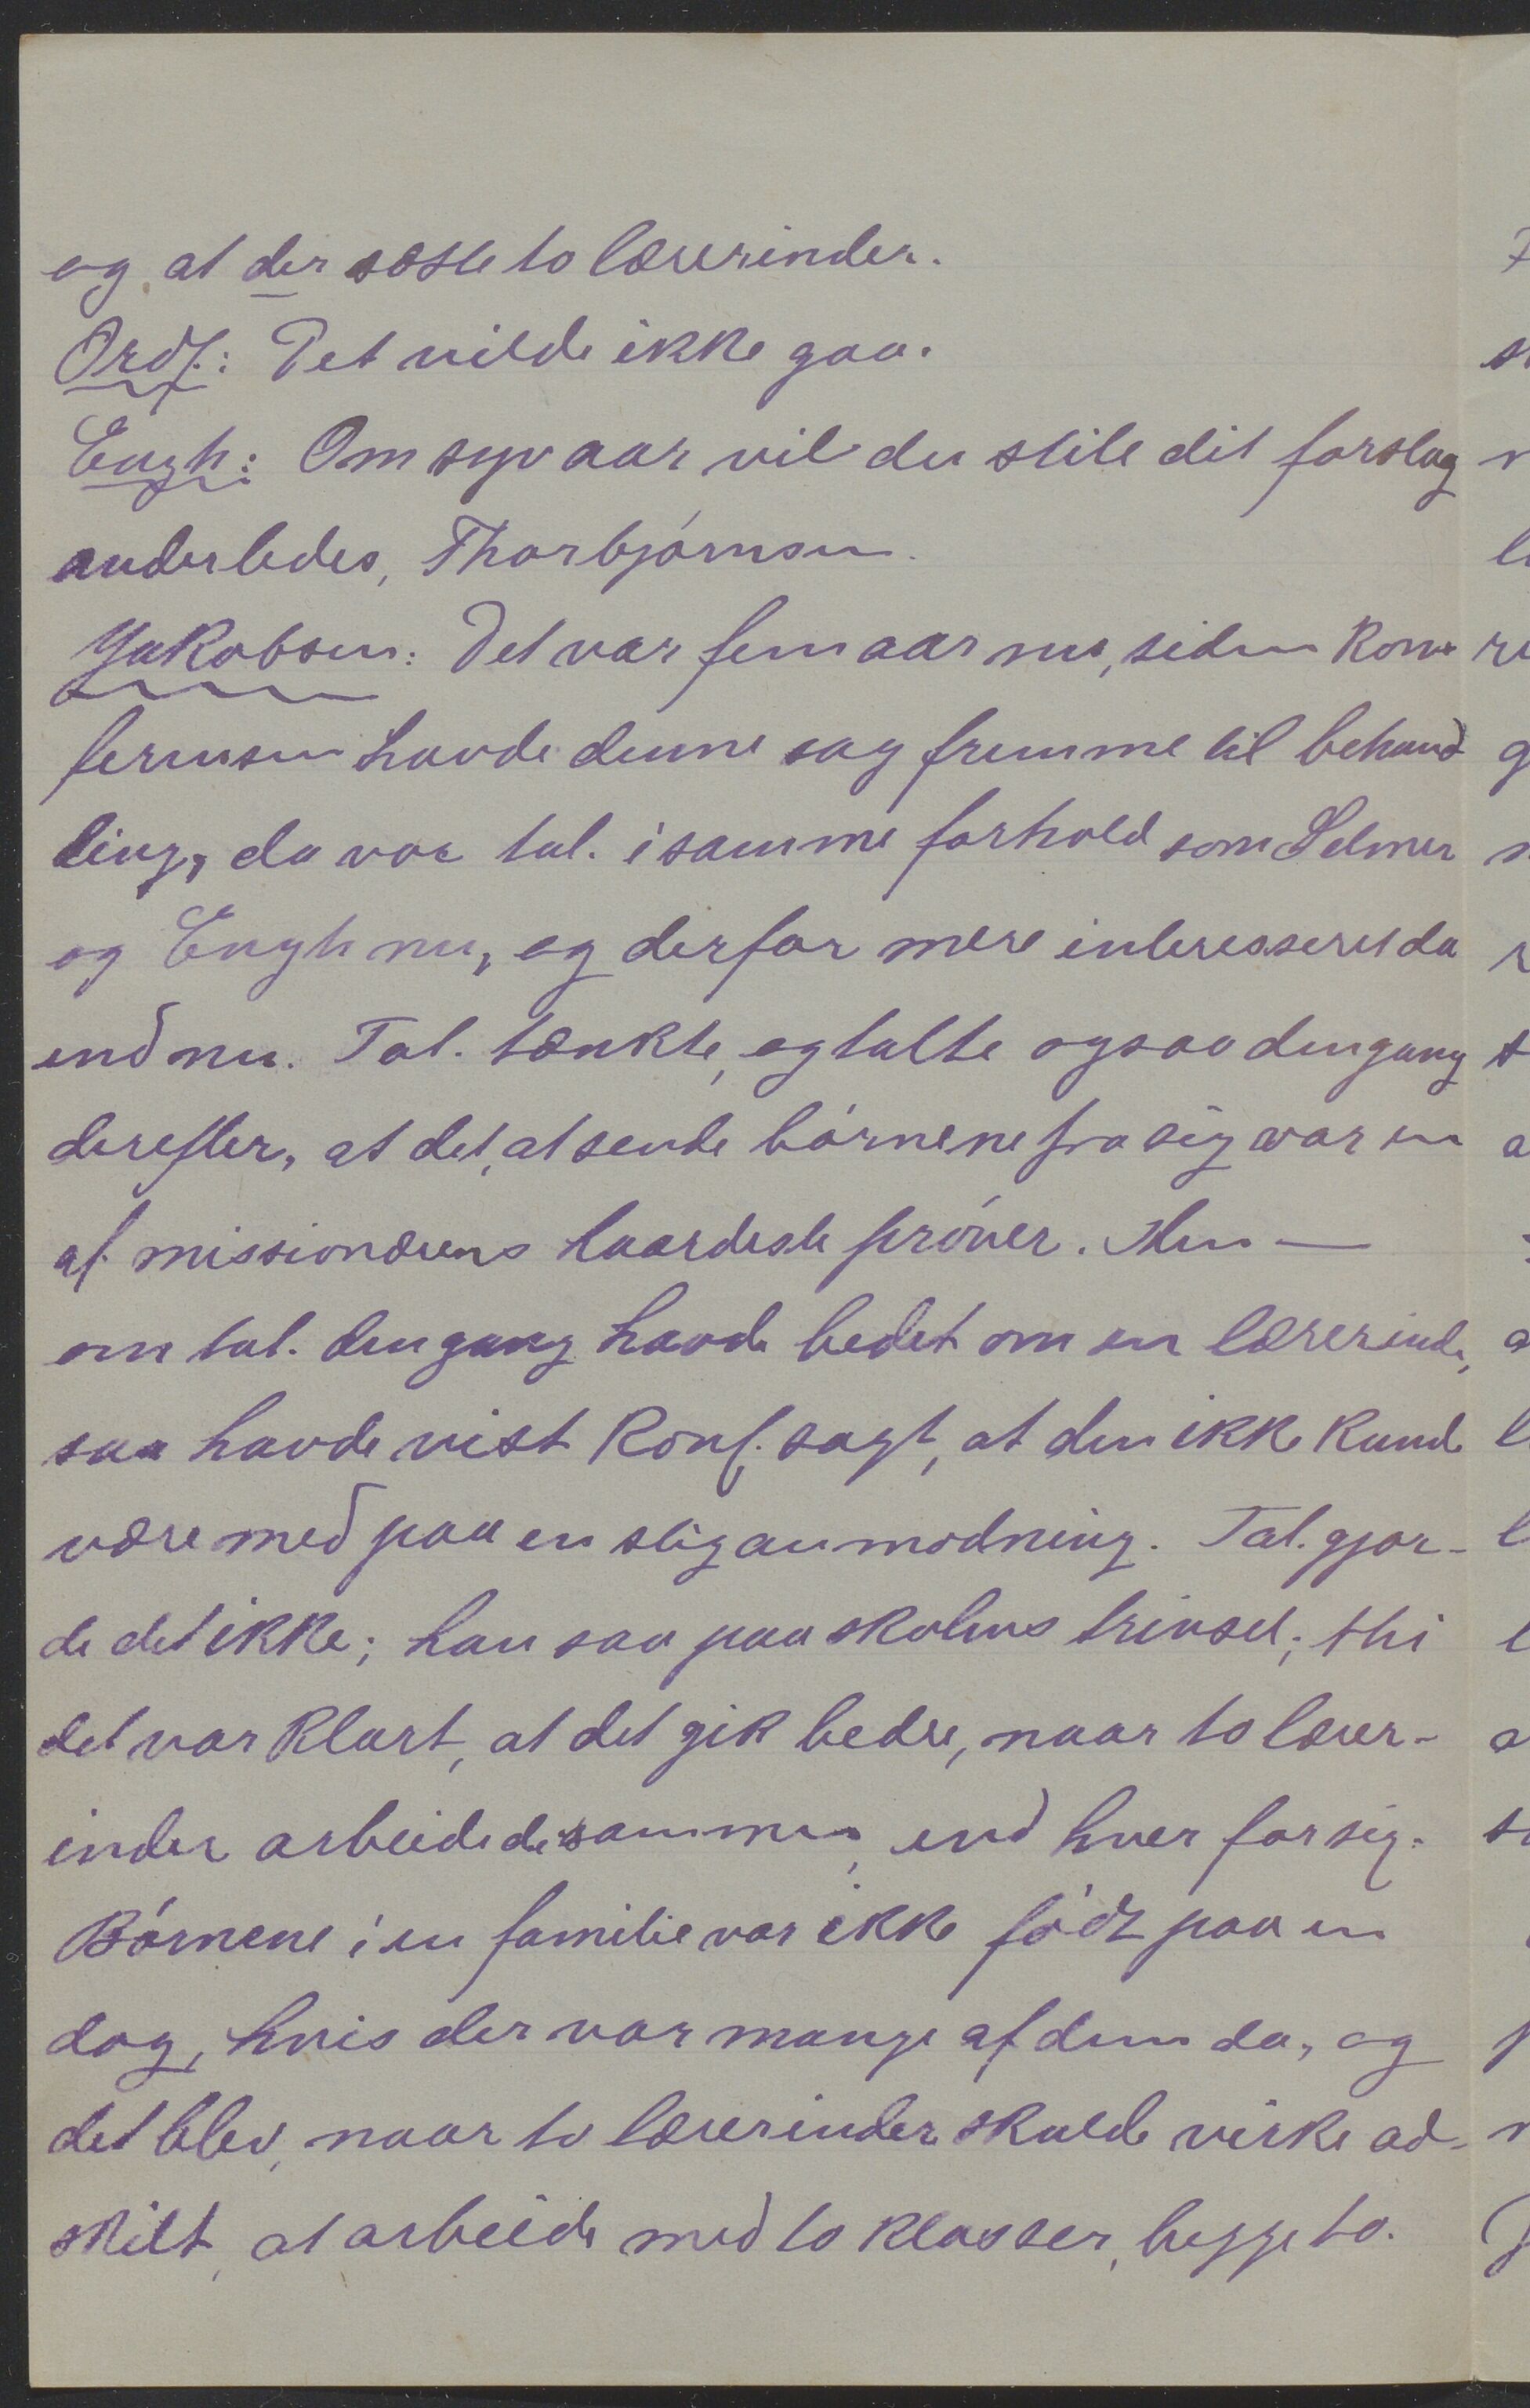 og at der sættes to lærerinder.
Ordf.: Det vilde ikke gaa.
Engh: Om syv aar vil du stile dit forslag
anderledes, Thorbjørnsen.
Jakobsen: Det var fem aar nu, siden kon-
ferensen havde denne sag fremme til behand
ling, da var tal. i samme forhold som Selmer
og Engh nu, og derfor mere interesseret da
end nu. Tal. tænkte, og talte ogsaa dengang
derefter, at det, at sende børnene fra sig var en
af missionærens haardeste prøver. Men —
om tal. dengang havde bedet om en lærerinde,
saa havde vist konf. sagt, at den ikke kunde
være med paa en slig anmodning. Tal. gjor-
de det ikke; han saa paa skolens trivsel; thi
det var klart, at det gik bedre, naar to lærer-
inder arbeidede sammen, end hver for sig.
Børnene i en familie var ikke født paa en
dag, hvis der var mange af dem da, og
det blev, naar to lærerinder skulde virke ad-
skilt, at arbeide med to klasser, begge to.